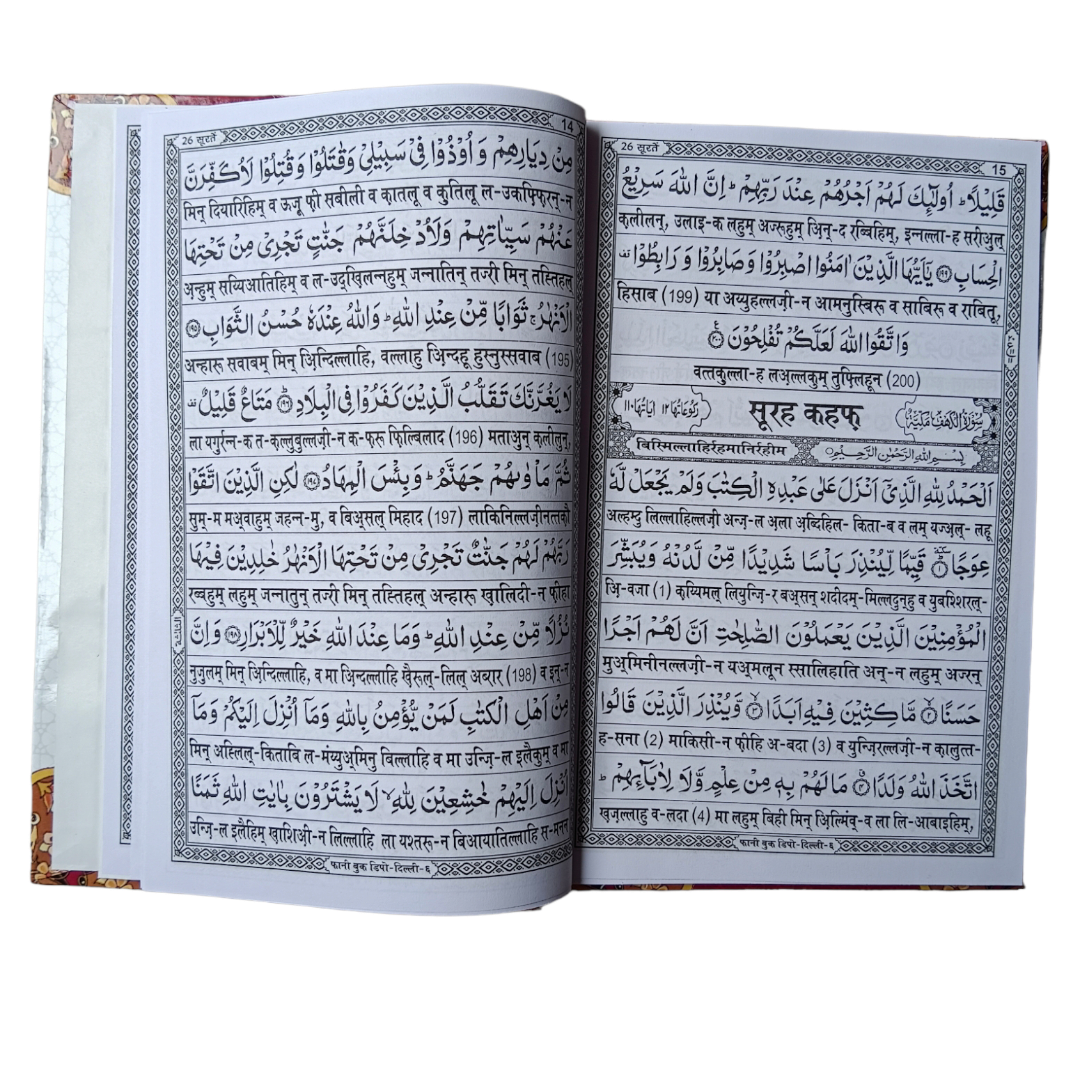 26 सूरतें
14
مِنْ دِيَارِهِمْ وَ اُوْذُوْا فِيْ سَبِيْلِيْ وَقٰتَلُوْا وَقُتِلُوْا لَاُكَفِّرَنَّ
मिन् दियारिहिम् व ऊजू फी सबीली व का़तलू व कुतिलू ल-उकफ्फिरन्-न
عَنْهُمْ سَيِّاٰتِهِمْ وَلَاُدْخِلَنَّهُمْ جَنّٰتٍ تَجْرِيْ مِنْ تَحْتِهَا
अ़न्हुम् सय्यिआतिहिम् व ल-उद्खिलन्नहुम् जन्नातिन् तज्री मिन् तह्तिहल्
الْاَنْهٰرُ ۚ ثَوَابًا مِّنْ عِنْدِ اللّٰهِ ؕ وَاللّٰهُ عِنْدَهٗ حُسْنُ الثَّوَابِ ﴿۱۹۵﴾
अन्हारु सवाबम् मिन् अ़िन्दिल्लाहि, वल्लाहु अ़िन्दहू हुस्नुस्सवाब (195)
لَا يَغُرَّنَّكَ تَقَلُّبُ الَّذِيْنَ كَفَرُوْا فِي الْبِلَادِ ﴿۱۹۶﴾ مَتَاعٌ قَلِيْلٌ ۟
ला यगुर्रन्न-क त-क़ल्लुबुल्लज़ी-न क-फ़रू फ़िल्बिलाद (196) मताअुन् क़लीलुन्,
ثُمَّ مَاْوٰىهُمْ جَهَنَّمُ ؕ وَبِئْسَ الْمِهَادُ ﴿۱۹۷﴾ لٰكِنِ الَّذِيْنَ اتَّقَوْا
सुम्-म मअ्वाहुम् जहन्न-मु, व बिअ्सल् मिहाद (197) लाकिनिल्लज़ीनत्तक़ौ
رَبَّهُمْ لَهُمْ جَنّٰتٌ تَجْرِيْ مِنْ تَحْتِهَا الْاَنْهٰرُ خٰلِدِيْنَ فِيْهَا
रब्बहुम् लहुम् जन्नातुन् तज्री मिन् तह्तिहल् अन्हारु ख़ालिदी-न फीहा
نُزُلًا مِّنْ عِنْدِ اللّٰهِ ؕ وَمَا عِنْدَ اللّٰهِ خَيْرٌ لِّلْاَبْرَارِ ﴿۱۹۸﴾ وَاِنَّ
नुज़ुलम् मिन् अ़िन्दिल्लाहि, व मा अ़िन्दल्लाहि खै़रुल्-लिल् अब्रार (198) व इन्-न
مِنْ اَهْلِ الْكِتٰبِ لَمَنْ يُّؤْمِنُ بِاللّٰهِ وَمَاۤ اُنْزِلَ اِلَيْكُمْ وَمَاۤ
मिन् अह्लिल्-किताबि ल-मंय्युअ्मिनु बिल्लाहि व मा उन्ज़ि-ल इलैकुम् व मा
اُنْزِلَ اِلَيْهِمْ خٰشِعِيْنَ لِلّٰهِ ۙ لَا يَشْتَرُوْنَ بِاٰيٰتِ اللّٰهِ ثَمَنًا
उन्ज़ि-ल इलैहिम् ख़ाशिअ़ी-न लिल्लाहि ला यश्तरू-न बिआयातिल्लाहि स-मनन्
फानी बुक डिपो-दिल्ली-६
26 सूरतें
15
قَلِيْلًا ؕ اُولٰٓئِكَ لَهُمْ اَجْرُهُمْ عِنْدَ رَبِّهِمْ ؕ اِنَّ اللّٰهَ سَرِيْعُ
क़लीलन्, उलाइ-क लहुम् अज्रुहुम् अ़िन्-द रब्बिहिम्, इन्नल्ला-ह सरीअुल्
الْحِسَابِ ﴿۱۹۹﴾ يٰۤاَيُّهَا الَّذِيْنَ اٰمَنُوا اصْبِرُوْا وَصَابِرُوْا وَ رَابِطُوْا ۟
हिसाब (199) या अय्युहल्लज़ी-न आमनुस्बिरू व साबिरू व राबितू,
وَاتَّقُوا اللّٰهَ لَعَلَّكُمْ تُفْلِحُوْنَ ﴿۲۰۰﴾
वत्तकुल्ला-ह लअ़ल्लकुम् तुफ्लिहून (200)
رُكُوْعَاتُهَا ١٢ اٰيَاتُهَا ١١٠
सूरह कहफ़
سُوْرَةُ الْكَهْفِ مَكِّيَّةٌ
बिस्मिल्लाहिर्रहमानिर्रहीम
بِسْمِ اللّٰهِ الرَّحْمٰنِ الرَّحِيْمِ
اَلْحَمْدُ لِلّٰهِ الَّذِيْۤ اَنْزَلَ عَلٰى عَبْدِهِ الْكِتٰبَ وَلَمْ يَجْعَلْ لَّهٗ
अल्हम्दु लिल्लाहिल्लज़ी अन्ज़-ल अ़ला अ़ब्दिहिल- किता-ब व लम् यज्अ़ल्- लहू
عِوَجًا ﴿۱﴾ قَيِّمًا لِّيُنْذِرَ بَاْسًا شَدِيْدًا مِّنْ لَّدُنْهُ وَيُبَشِّرَ
अ़ि-वजा (1) क़य्यिमल् लियुन्ज़ि-र बअ्सन् शदीदम्-मिल्लदुन्हु व युबश्शिरल्-
الْمُؤْمِنِيْنَ الَّذِيْنَ يَعْمَلُوْنَ الصّٰلِحٰتِ اَنَّ لَهُمْ اَجْرًا
मुअ्मिनीनल्लज़ी-न यअ्मलून स्सालिहाति अन्-न लहुम् अज्रन्
حَسَنًا ﴿۲﴾ مَّاكِثِيْنَ فِيْهِ اَبَدًا ﴿۳﴾ وَّيُنْذِرَ الَّذِيْنَ قَالُوا
ह-सना (2) माकिसी-न फीहि अ-बदा (3) व युन्ज़िरल्लज़ी-न क़ालुत्त-
اتَّخَذَ اللّٰهُ وَلَدًا ﴿۴﴾ مَا لَهُمْ بِهٖ مِنْ عِلْمٍ وَّلَا لِاٰبَآئِهِمْ ؕ
ख़ज़ल्लाहु व-लदा (4) मा लहुम् बिही मिन् अ़िल्मिंव्-व ला लि-आबाइहिम्,
फानी बुक डिपो-दिल्ली-६